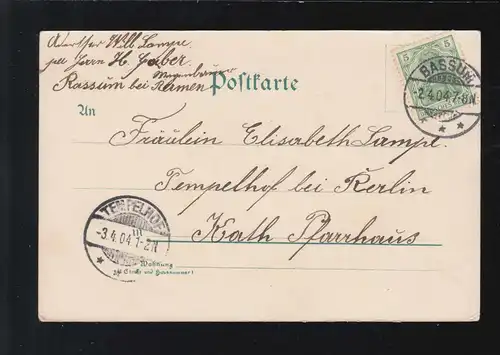 Will Lampe.
per Herrn H. Caber
Wagenbauer
Bassum bei Bremen
Postkarte
5 5
BASSUM
2.4.04.7-8N.
An
Fräulein Elisabeth Lampe.
Tempelhof bei Berlin
Kath Pfarrhaus
TEMPELHOF
-3.4.04 1-2N
Wohnung
(Straße und Hausnummer)